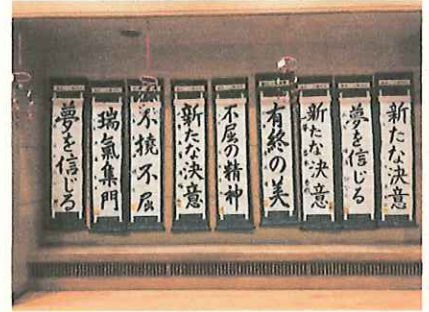 新たな決意
夢を信じる
新たな決意
有終の美
不屈の精神
新たな決意
不撓不屈
瑞氣集門
夢を信じる